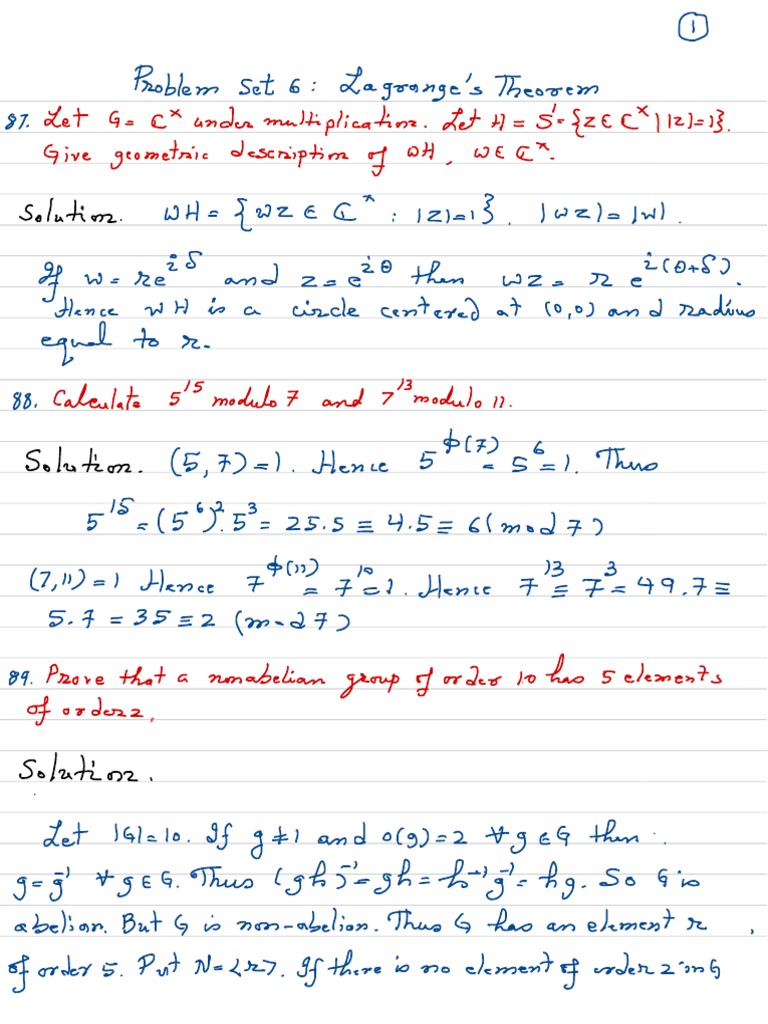 1
Problem Set 6: Lagrange's Theorem
87. Let G = ℂ^× under multiplication. Let H = S¹ = {z ∈ ℂ^× | |z| = 1}.
Give geometric description of wH, w ∈ ℂ^×.
Solution. wH = {wz ∈ ℂ^× : |z| = 1}. |wz| = |w|.
If w = re^{iδ} and z = e^{iθ} then wz = r e^{i(θ+δ)}.
Hence wH is a circle centered at (0,0) and radius
equal to r.
88. Calculate 5^{15} modulo 7 and 7^{13} modulo 11.
Solution. (5,7) = 1. Hence 5^{ϕ(7)} = 5^6 = 1. Thus
5^{15} = (5^6)^2. 5^3 = 25.5 ≡ 4.5 ≡ 6 (mod 7)
(7,11) = 1 Hence 7^{ϕ(11)} = 7^{10} = 1. Hence 7^{13} ≡ 7^3 = 49.7 ≡
5.7 = 35 ≡ 2 (mod 7)
89. Prove that a nonabelian group of order 10 has 5 elements
of order 2.
Solution.
Let |G| = 10. If g ≠ 1 and o(g) = 2 ∀ g ∈ G then
g = g^{-1} ∀ g ∈ G. Thus (gh)^{-1} = gh = h^{-1}g^{-1} = hg. So G is
abelian. But G is non-abelian. Thus G has an element r
of order 5. Put N = <r>. If there is no element of order 2 in G